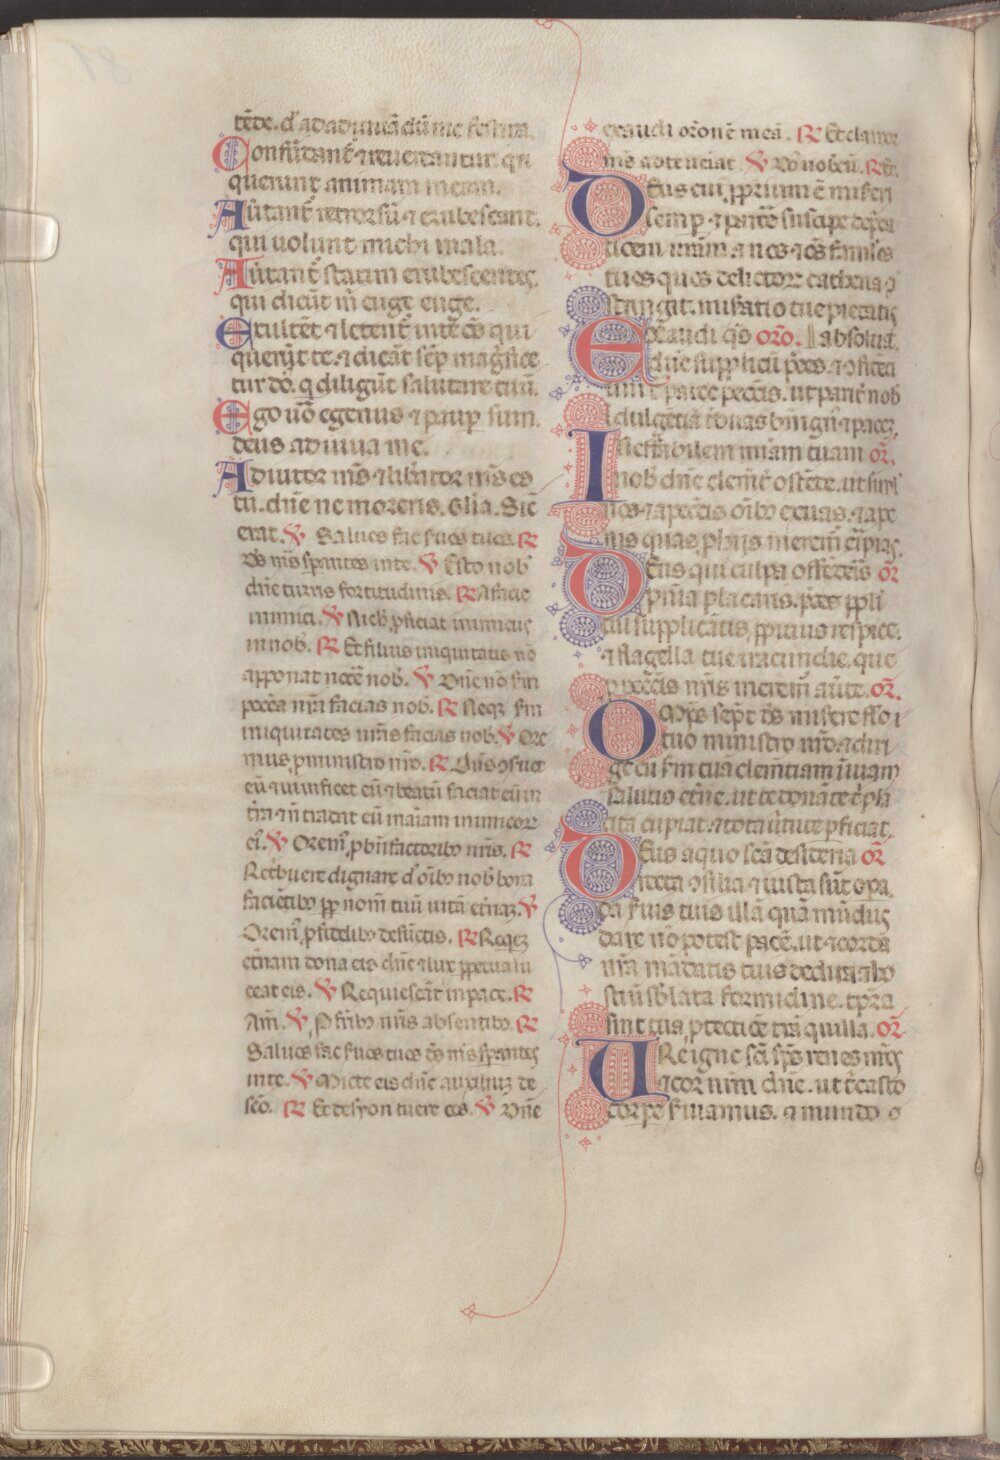 tēde. d' ad adiuuā dū me festina.
Confūdant' ⁊ reuereantur. qui
querunt animam meam.
Auertant' retrorsū. ⁊ erubescant.
qui uolunt michi mala.
Auertant' statim erubescentes.
qui dicūt m̄ euge euge.
Exultēt ⁊ letent' in te oēs qui
querūt te. ⁊ dicāt sēp magnifice
tur dō. q diligūt salutare tuū.
Ego uō egenus ⁊ paup sum.
deus adiuua me.
Adiutor m̄s ⁊ libātor m̄s es
tu. dn̄e ne moreris. Gl'ia. Sic
erat. ℣ Saluos fac suos tuos. ℟
Ds m̄s spantes in te. ℣ Esto nob
dn̄e turris fortitudinis. ℟ A facie
inimici. ℣ Nich' pficiat inimicus
in nob. ℟ Et filius iniquitatis nō
apponat nocē nob. ℣ Dn̄e nō sm
peccā nr̄a facias nob. ℟ Neqz sm
iniquitates nr̄as facias nob. ℣ Ore
mus p ministro nr̄o. ℟ Dn̄s ɔseruet
eū ⁊ uiuificet eū ⁊ beatū faciat eū in
t̄ra ⁊ n̄ tradat eū in aīam inimicor
ei'. ℣ Orem' p bn̄factoribz nr̄is. ℟
Retbuere dignare d' oībz nob bona
faciētibz pp nom̄ tuū uitā et'naz. ℣
Orem' p fidelibz defūctis. ℟ Requiē
et'nam dona eis dn̄e ⁊ lux ppetua lu
ceat eis. ℣ Requiescāt in pace. ℟
Am̄. ℣ P fr̄ibz nr̄is absentibz. ℟
Saluos fac suos tuos ds m̄s spantes
in te. ℣ Micte eis dn̄e auxiliuz de
scō. ℟ Et de syon tuere eos. ℣ Dn̄e
exaudi or̄onē meā. ℟ Et clamor
m̄s ad te ueniat. ℣ Dn̄s nobcū. ℟ Et.
Deus cui pprium ē miseri
semp ⁊ parcē suscipe depca
tionem nr̄am. a nos ⁊ oēs famulos
tuos quos delictorz cathena ɔ
stringit. miseratio tue pietatis
Exaudi qs oro. absoluat.
dn̄e supplicū pces. ⁊ ɔfitēti
um t' parce peccīs. ut parit' nob
idulgētiā t'buas bnīgn' ⁊ pacez.
Ineffabilem miam tuam or̄.
nob dn̄e clement' ostēde. ut simul
nos ⁊ a peccīs oībz exuas. ⁊ a pe
nis quas p hiis merem' eripias.
Deus qui culpa offēderis or̄
pn̄ia placaris. pces ppli
tui supplicātis. ppitius respice.
⁊ flagella tue iracundie. que
p peccīs nr̄is merem' aūte. or̄.
Omps sempt' ds miserē flo i
tuo ministro nr̄o. ⁊ diri
ge eū sm tuā clementiam in uiam
salutis et'ne. ut te donāte t' pla
cita cupiat. ⁊ tota uirtute pficiat.
Deus a quo scā desideria or̄
recta ɔsilia ⁊ iusta sūt opa.
da seruis tuis illā quā mūdus
dare nō potest pacē. ut ⁊ corda
nr̄a mādatis tuis dedita ⁊ ho
stiū sblata formidine. tpr̄a
sint tua ptectiōe trāquilla. or̄.
Ure igne scī sps renes nr̄os
⁊ cor nr̄m dn̄e. ut t' casto
corpe seruiamus. ⁊ mundo c